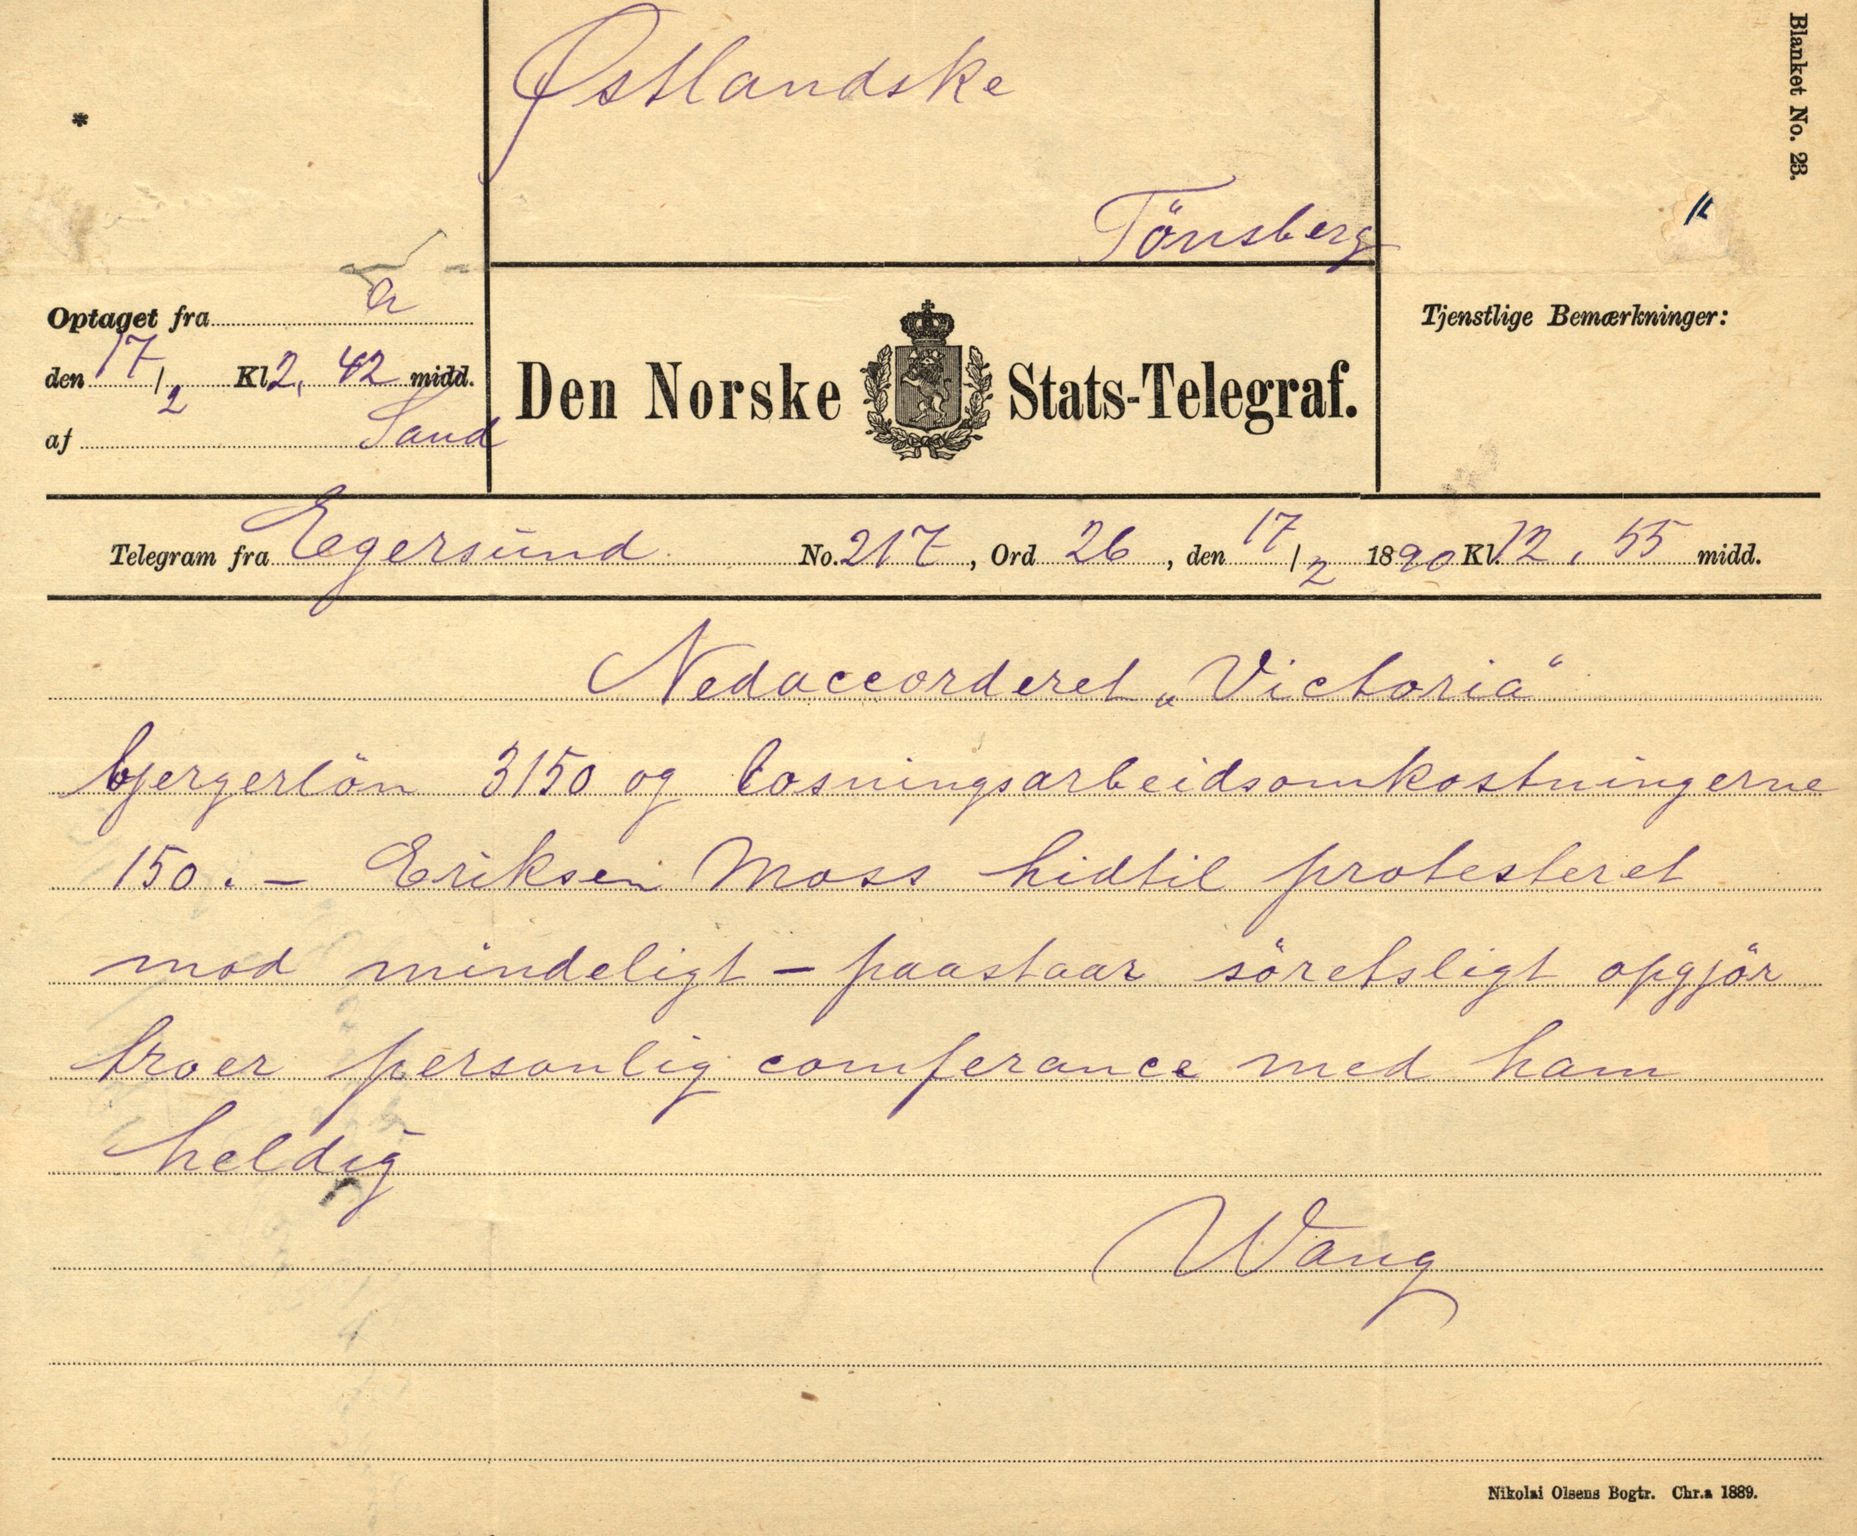 Blanket No. 23.
*
Østlandske
Tönsberg
Optaget fra
den 17/2 Kl. 2, 42 midd.
af Sand
Den Norske Stats-Telegraf.
Tjenstlige Bemærkninger:
Telegram fra Egersund No. 217, Ord 26, den 17/2 1890 Kl. 12, 55 midd.
Nedaccorderet „Victoria“
bjergerlön 3150 og losningsarbeidsomkostningerne
150. – Eriksen Moss hidtil protesteret
mod mindeligt – paastaar söretsligt opgjör
troer personlig comferance med ham
heldig
Wang
Nikolai Olsens Bogtr. Chr.a 1889.